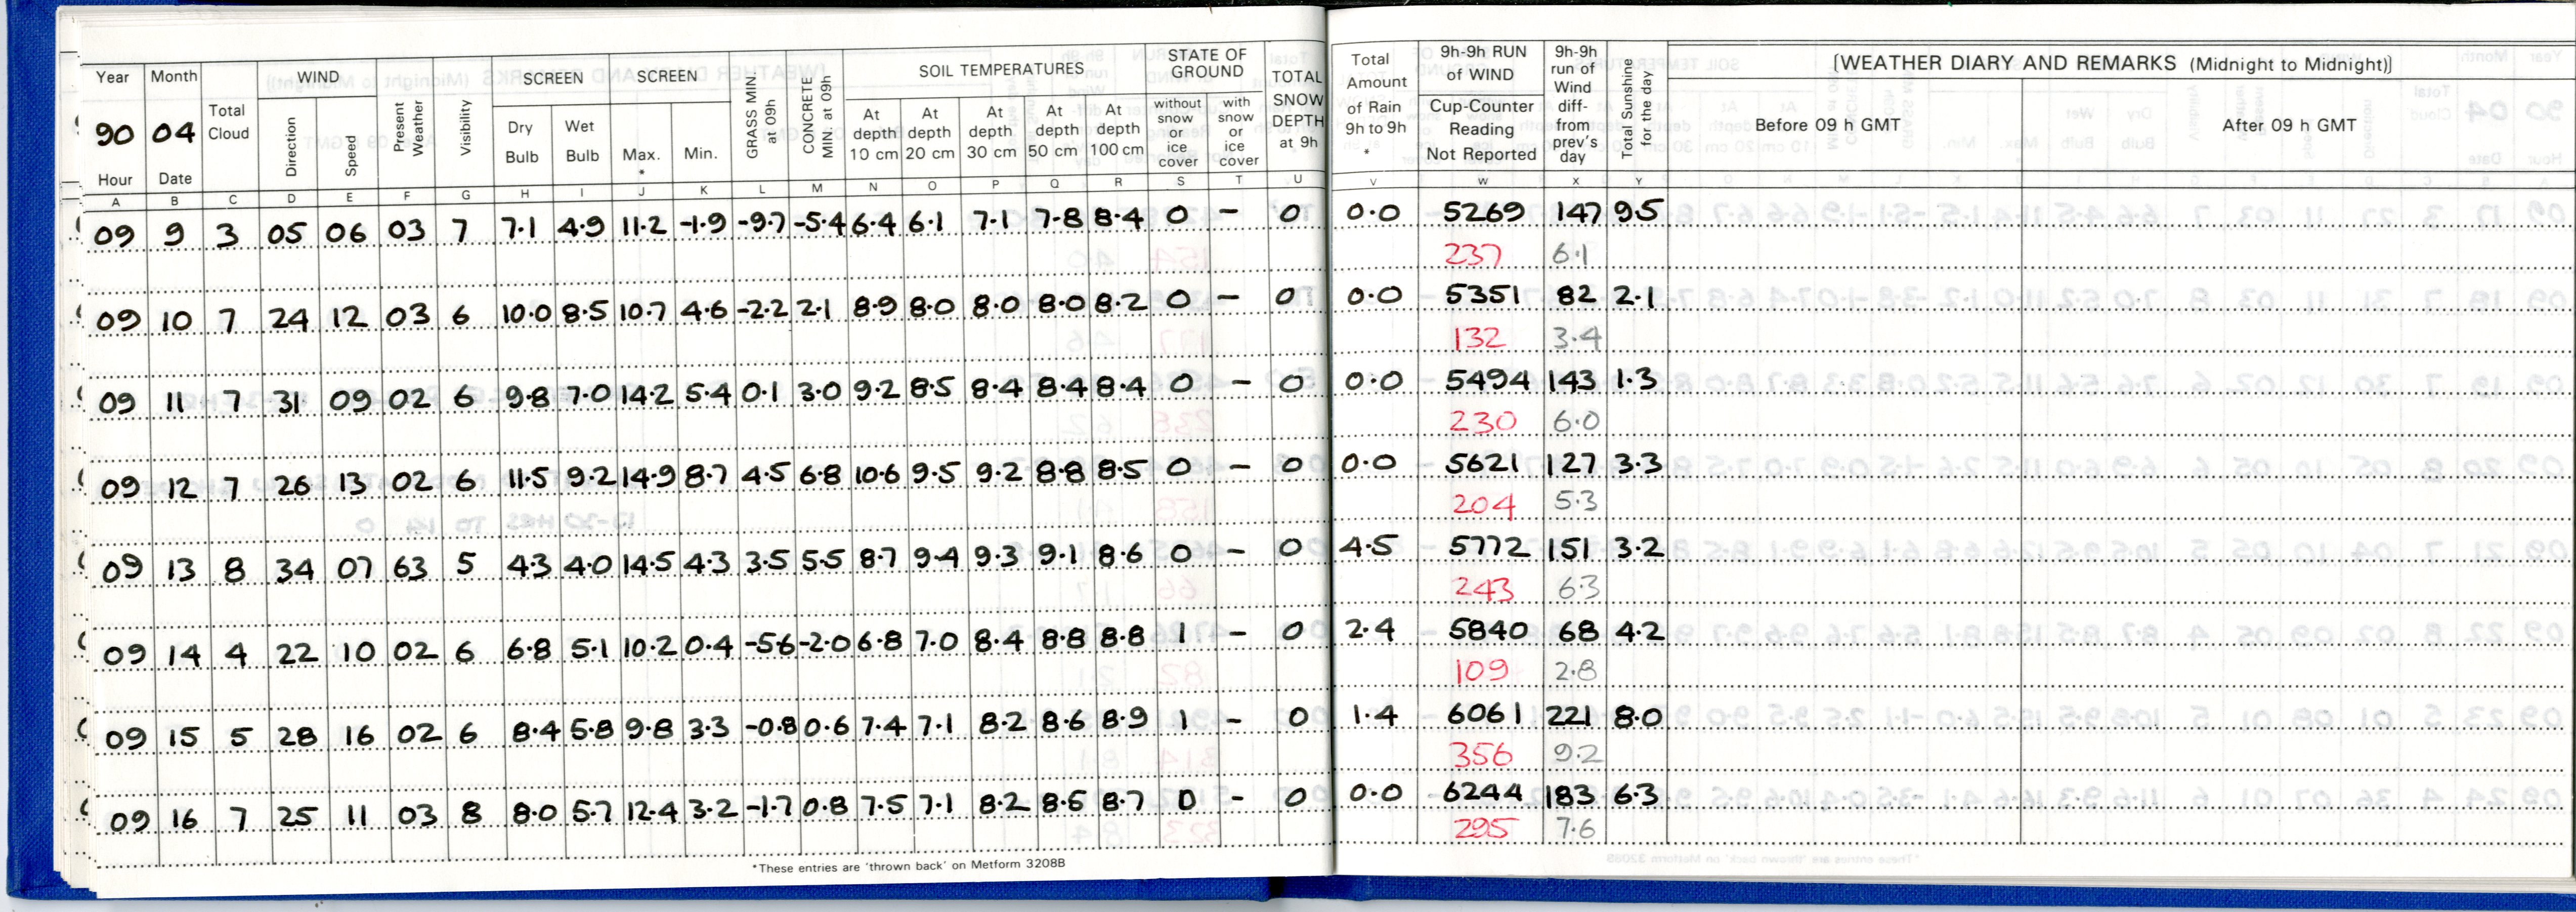 Year Month Total Cloud WIND Present Weather Visibility SCREEN SCREEN GRASS MIN. at 09h CONCRETE MIN. at 09h SOIL TEMPERATURES STATE OF GROUND TOTAL SNOW DEPTH at 9h Total Amount of Rain 9h to 9h * 9h-9h RUN of WIND 9h-9h run of Wind diff- from prev's day Total Sunshine for the day [WEATHER DIARY AND REMARKS (Midnight to Midnight)]
90 04 Direction Speed Dry Bulb Wet Bulb Max. * Min. At depth 10 cm At depth 20 cm At depth 30 cm At depth 50 cm At depth 100 cm without snow or ice cover with snow or ice cover Cup-Counter Reading Not Reported Before 09 h GMT After 09 h GMT
Hour Date
A B C D E F G H I J K L M N O P Q R S T U V W X Y
09 9 3 05 06 03 7 7.1 4.9 11.2 -1.9 -9.7 -5.4 6.4 6.1 7.1 7.8 8.4 0 - 0 0.0 5269 147 9.5
237 6.1
09 10 7 24 12 03 6 10.0 8.5 10.7 4.6 -2.2 2.1 8.9 8.0 8.0 8.0 8.2 0 - 0 0.0 5351 82 2.1
132 3.4
09 11 7 31 09 02 6 9.8 7.0 14.2 5.4 0.1 3.0 9.2 8.5 8.4 8.4 8.4 0 - 0 0.0 5494 143 1.3
230 6.0
09 12 7 26 13 02 6 11.5 9.2 14.9 8.7 4.5 6.8 10.6 9.5 9.2 8.8 8.5 0 - 0 0.0 5621 127 3.3
204 5.3
09 13 8 34 07 63 5 4.3 4.0 14.5 4.3 3.5 5.5 8.7 9.4 9.3 9.1 8.6 0 - 0 4.5 5772 151 3.2
243 6.3
09 14 4 22 10 02 6 6.8 5.1 10.2 0.4 -5.6 -2.0 6.8 7.0 8.4 8.8 8.8 1 - 0 2.4 5840 68 4.2
109 2.8
09 15 5 28 16 02 6 8.4 5.8 9.8 3.3 -0.8 0.6 7.4 7.1 8.2 8.6 8.9 1 - 0 1.4 6061 221 8.0
356 9.2
09 16 7 25 11 03 8 8.0 5.7 12.4 3.2 -1.7 0.8 7.5 7.1 8.2 8.6 8.7 0 - 0 0.0 6244 183 6.3
295 7.6
*These entries are 'thrown back' on Metform 3208B